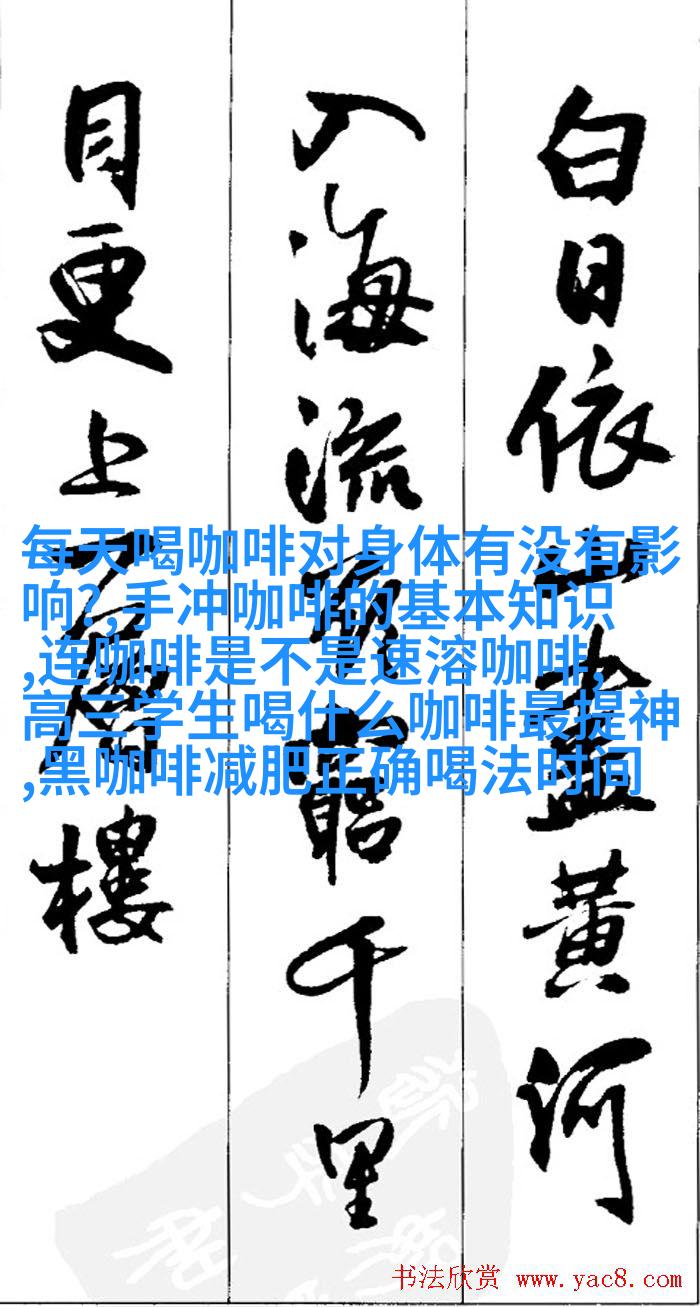 白日依山盡黄河
入海流欲窮千里
目更上一層樓
每天喝咖啡对身体有没有影
响?,手冲咖啡的基本知识
,连咖啡是不是速溶咖啡,
高三学生喝什么咖啡最提神
,黑咖啡减肥正确喝法时间
书法欣赏 www.yac8.com